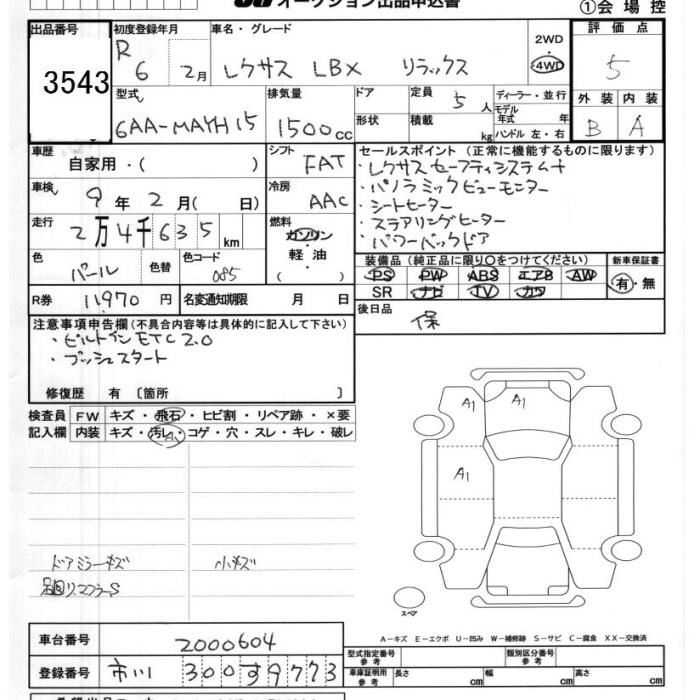 オークション出品申込書
①会場控
出品番号
3543
初度登録年月
R6 2月
車名・グレード
レクサス LBX リラックス
2WD
4WD
評価点
5
型式
6AA-MAYH15
排気量
1500cc
ドア
形状
定員 5人
積載 kg
ディーラー・並行
モデル年式 年
ハンドル 左・右
外装 内装
B A
車歴
自家用・( )
シフト
FAT
車検
9年2月( 日)
冷房
AAC
走行
2万4千635km
燃料
ガソリン
軽油
( )
色
パール
色替
色コード
085
R券 11970円
名変通知期限 月 日
セールスポイント(正常に機能するものに限ります)
・レクサスセーフティシステム+
・パノラミックビューモニター
・シートヒーター
・ステアリングヒーター
・パワーバックドア
装備品(純正品に限り○をつけてください)
PS PW ABS エアB AW
SR ナビ TV カワ
新車保証書
有・無
後日品
保
注意事項申告欄(不具合内容等は具体的に記入して下さい)
・ビルトインETC2.0
・プッシュスタート
修復歴 有〔箇所 〕
検査員記入欄
FW キズ・飛石・ヒビ割・リペア跡・×要
内装 キズ・汚レ・コゲ・穴・スレ・キレ・破レ
A1
A1
A1
ドアミラーキズ
小キズ
足回リマフラーS
スペア
A-キズ E-エクボ U-凹み W-補修跡 S-サビ C-腐食 XX-交換済
車台番号
2000604
登録番号
市川 300す9773
型式指定番号
参考
類別区分番号
参考
車庫証明用
参考
長さ cm
幅 cm
高さ cm